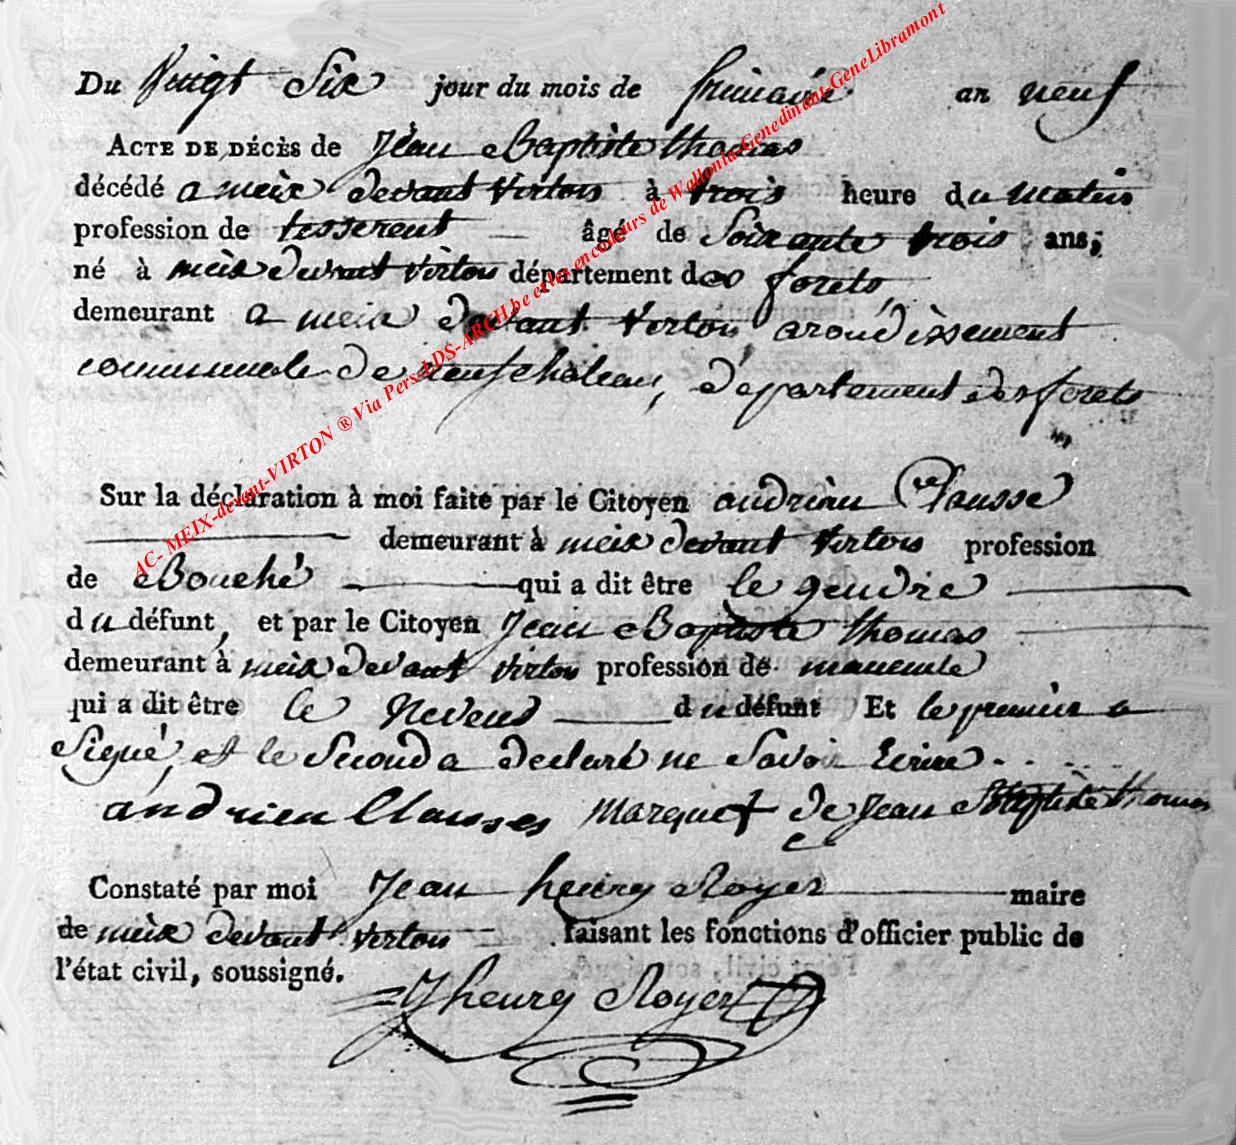 Du Vingt Six jour du mois de frimaire an neuf
ACTE DE DÉCÈS de Jean Baptiste thomas
décédé a meix devant Virton à trois heure du matin
profession de tisserent âgé de Soixante trois ans,
né à meix devant Virton département des forets,
demeurant a meix devant Virton arondissement
communale de neufchateau, département des forets
Sur la déclaration à moi faite par le Citoyen andrien Clausse
demeurant à meix devant Virton profession
de Bouché qui a dit être le gendre
du défunt, et par le Citoyen Jean Baptiste thomas
demeurant à meix devant Virton profession de maneuvre
qui a dit être le Neveus du défunt Et le premier a
Signé, et le Second a declaré ne Savoir Ecrire
andrien Clausses Marque + de Jean Baptiste thomas
Constaté par moi Jean henry Royer maire
de meix devant Virton faisant les fonctions d'officier public de
l'état civil, soussigné.
J henry Royer
AC- MEIX-devant-VIRTON ® Via Pers-LDS-ARCH.be et les encodeurs de Wallonia-Genedinant-GeneLibramont